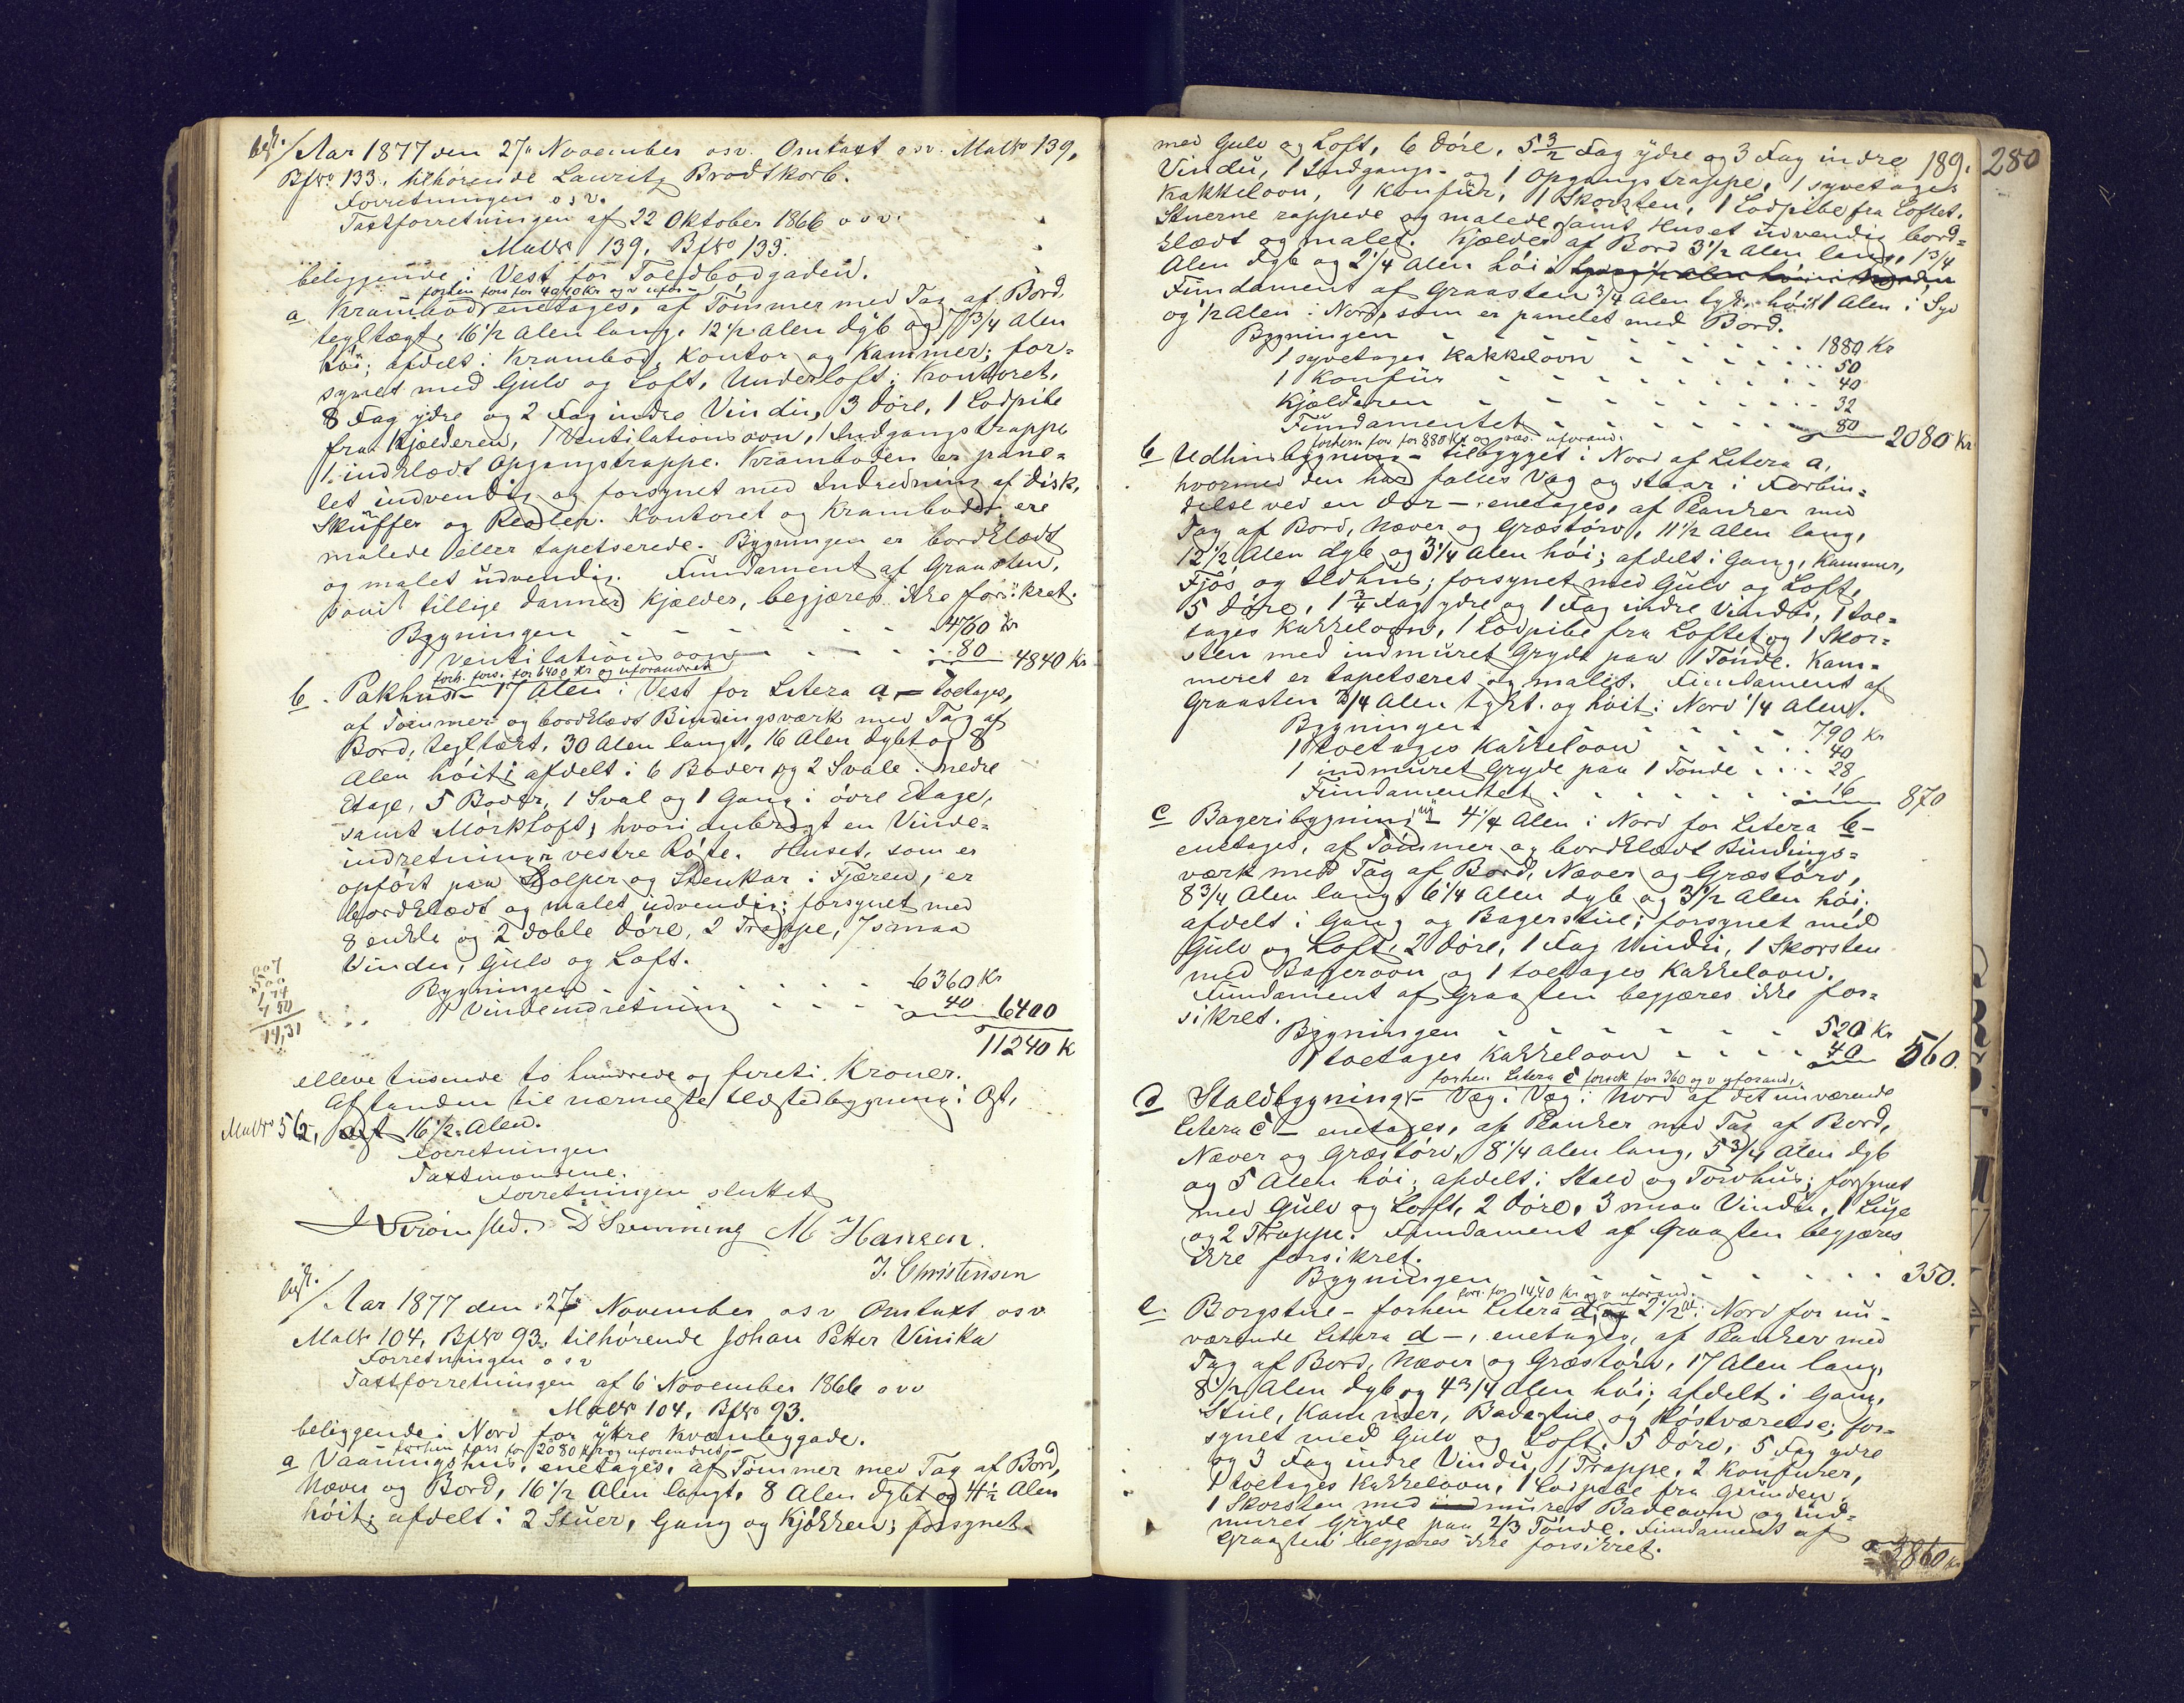 Aar 1877 den 27 November osv. Omtaxt osv. MatNo 139,
BfNo 133. tilhørende Lauritz Brodtkorb.
Forretningen osv.
Taxtforretningen af 22 Oktober 1866 osv.
MatNo 139. BfNo 133.
beliggende i Vest for Toldbodgaden.
a Krambod, enetages, af Tømmer med Tag af Bord
tegltægt, 16 1/2 Alen lang, 12 1/2 Alen dyb og 7 3/4 Alen
høi; afdelt i Krambod, Kontor og Kammer; for=
synet med Gulv og Loft, Underloft i Kontoret,
8 Fag ydre og 2 Fag indre Vindu, 3 Døre, 1 Lodpibe
fra Kjælderen, 1 Ventilationsovn, 1 Indgangstrappe
1 indklædt Opgangstrappe. Kramboden er pane=
let indvendig og forsynet med Indredning af Disk,
Skuffer og Reoler. Kontoret og Kramboden ere
malede eller tapetserede. Bygningen er bordklædt
og malet udvendig. Fundament af Graasten,
som tillige danner Kjælder, begjæres ikke forsikret.
Bygningen 4760 Kr
1 Ventilationsovn 80 4840 Kr
forh. fors. for 6400 Kr og uforandret
b. Pakhus - 17 Alen i Vest for Litera a - toetages,
af Tømmer og bordklædt Bindingsværk med Tag af
Bord, tegltækt, 30 Alen langt, 16 Alen dybt og 8
Alen høit; afdelt i 6 Boder og 2 Svale i nedre
Etage, 5 Boder, 1 Sval og 1 Gang i øvre Etage,
samt Mørkloft, hvori anbragt en Vinde=
indretning i vestre Røste. Huset, som er
opført paa Stolper og Stenkar i Fjæren, er
bordklædt og malet udvendig; forsynet med
8 enkle og 2 doble Døre, 2 Trappe, 7 smaa
Vinduer, Gulv og Loft.
Bygningen 6360 Kr
1 Vindeindretning 40 6400
11240 K
elleve tusende to hundrede og firti Kroner.
Afstanden til nærmeste Ildstedbygning i Øst,
MatNo 562, 16 1/2 Alen.
Forretningen
Taxtmændene.
Forretningen sluttet
M Hansen.
J. Christensen
Aar 1877 den 27 November osv Omtaxt osv
MatNo 104, BfNo 93. tilhørende Johan Petter Vinika
Forretningen osv
Taxtforretningen af 6 November 1866 osv
MatNo 104, BfNo 93.
beliggende i Nord for ytre Kvænbyggade.
forhen fors for 2080 Kr og uforandret
a Vaaningshus, enetages, af Tømmer med Tag af Bord,
Næver og Bord, 16 1/2 Alen langt, 8 Alen dybt og 4 1/2 Alen
høit; afdelt i 2 Stuer, Gang og Kjøkken; forsynet
189. 280
med Gulv og Loft, 6 Døre, 5 3/2 Fag ydre og 3 Fag indre
Vindu, 1 Indgangs- og 1 Opgangstrappe, 1 syvetages
Kakkelovn, 1 Konfur, 1 Skorsten, 1 Lodpibe fra Loftet.
Stuerne rappede og malede samt Huset udvendig bord=
klædt og malet. Kjælder af Bord 3 1/2 Alen lang, 1 3/4
Alen dyb og 2 1/4 Alen høi
Fundament af Graasten 3/4 Alen tyk, høit 1 Alen i Syd
og 1/2 Alen i Nord, som er panelet med Bord.
Bygningen 1880 Kr
1 syvetages Kakkelovn 50
1 Konfur 40
Kjælderen 32
Fundamentet 80 2080 Kr
forhen for for 880 Kr og uforand.
b Udhusbygning - tilbygget i Nord af Litera a,
hvormed den har fælles Væg og staar i Forbin=
delse ved en Dør - enetages, af Planker med
Tag af Bord, Næver og Græstørv, 11 1/2 Alen lang,
12 1/2 Alen dyb og 3 1/4 Alen høi; afdelt i Gang, Kammer,
Fjøs og Ildhus; forsynet med Gulv og Loft,
5 Døre, 1 3/4 Fag ydre og 1 Fag indre Vindu, 1 toe=
tages Kakkelovn, 1 Lodpibe fra Loftet og 1 Skor=
sten med indmuret Gryde paa 1 Tønde. Kam=
meret er tapetseret og malet. Fundament af
Graasten 3/4 Alen tykt og høit i Nord 1/4 Alen.
Bygningen 790 Kr
1 toetages Kakkelovn 40
1 indmuret Gryde paa 1 Tønde 28
Fundamentet 16 870
c Bageribygning - 4 1/4 Alen i Nord for Litera b -
enetages, af Tømmer og bordklædt Bindings=
værk med Tag af Bord, Næver og Græstørv,
8 3/4 Alen lang, 6 1/4 Alen dyb og 3 1/2 Alen høi;
afdelt i Gang og Bagerstue; forsynet med
Gulv og Loft, 2 Døre, 1 Fag Vindu, 1 Skorsten
med Bagerovn og 1 toetages Kakkelovn.
Fundament af Graasten begjæres ikke for=
sikret.
Bygningen 520 Kr
1 toetages Kakkelovn 40 560.
forhen Litera c forsik for 360 og uforand.
d Staldbygning - Væg i Væg i Nord af det nuværende
Litera c - enetages, af Planker med Tag af Bord,
Næver og Græstørv, 8 1/4 Alen lang, 5 3/4 Alen dyb
og 5 Alen høi; afdelt i Stald og Torvhus; forsynet
med Gulv og Loft, 2 Døre, 3 smaa Vindu, 1 Luge
og 2 Trappe. Fundament af Graasten begjæres
ikke forsikret.
Bygningen 350.
fors. for 1440 Kr og uforand.
e. Borgstue - forhen Litera d, 2 1/2 Al. i Nord for nu=
værende Litera d -, enetages, af Planker med
Tag af Bord, Næver og Græstørv, 17 Alen lang,
8 1/2 Alen dyb og 4 3/4 Alen høi; afdelt i Gang,
Stue, Kammer, Badestue og Høstværelse; for=
synet med Gulv og Loft, 5 Døre, 5 Fag ydre
og 3 Fag indre Vindu, 1 Trappe, 2 Konfurer,
1 toetages Kakkelovn, 1 Lodpibe fra Grunden,
1 Skorsten med muret Badeovn og ind=
muret Gryde paa 2/3 Tønde. Fundament af
Graasten begjæres ikke forsikret.
3860 Kr